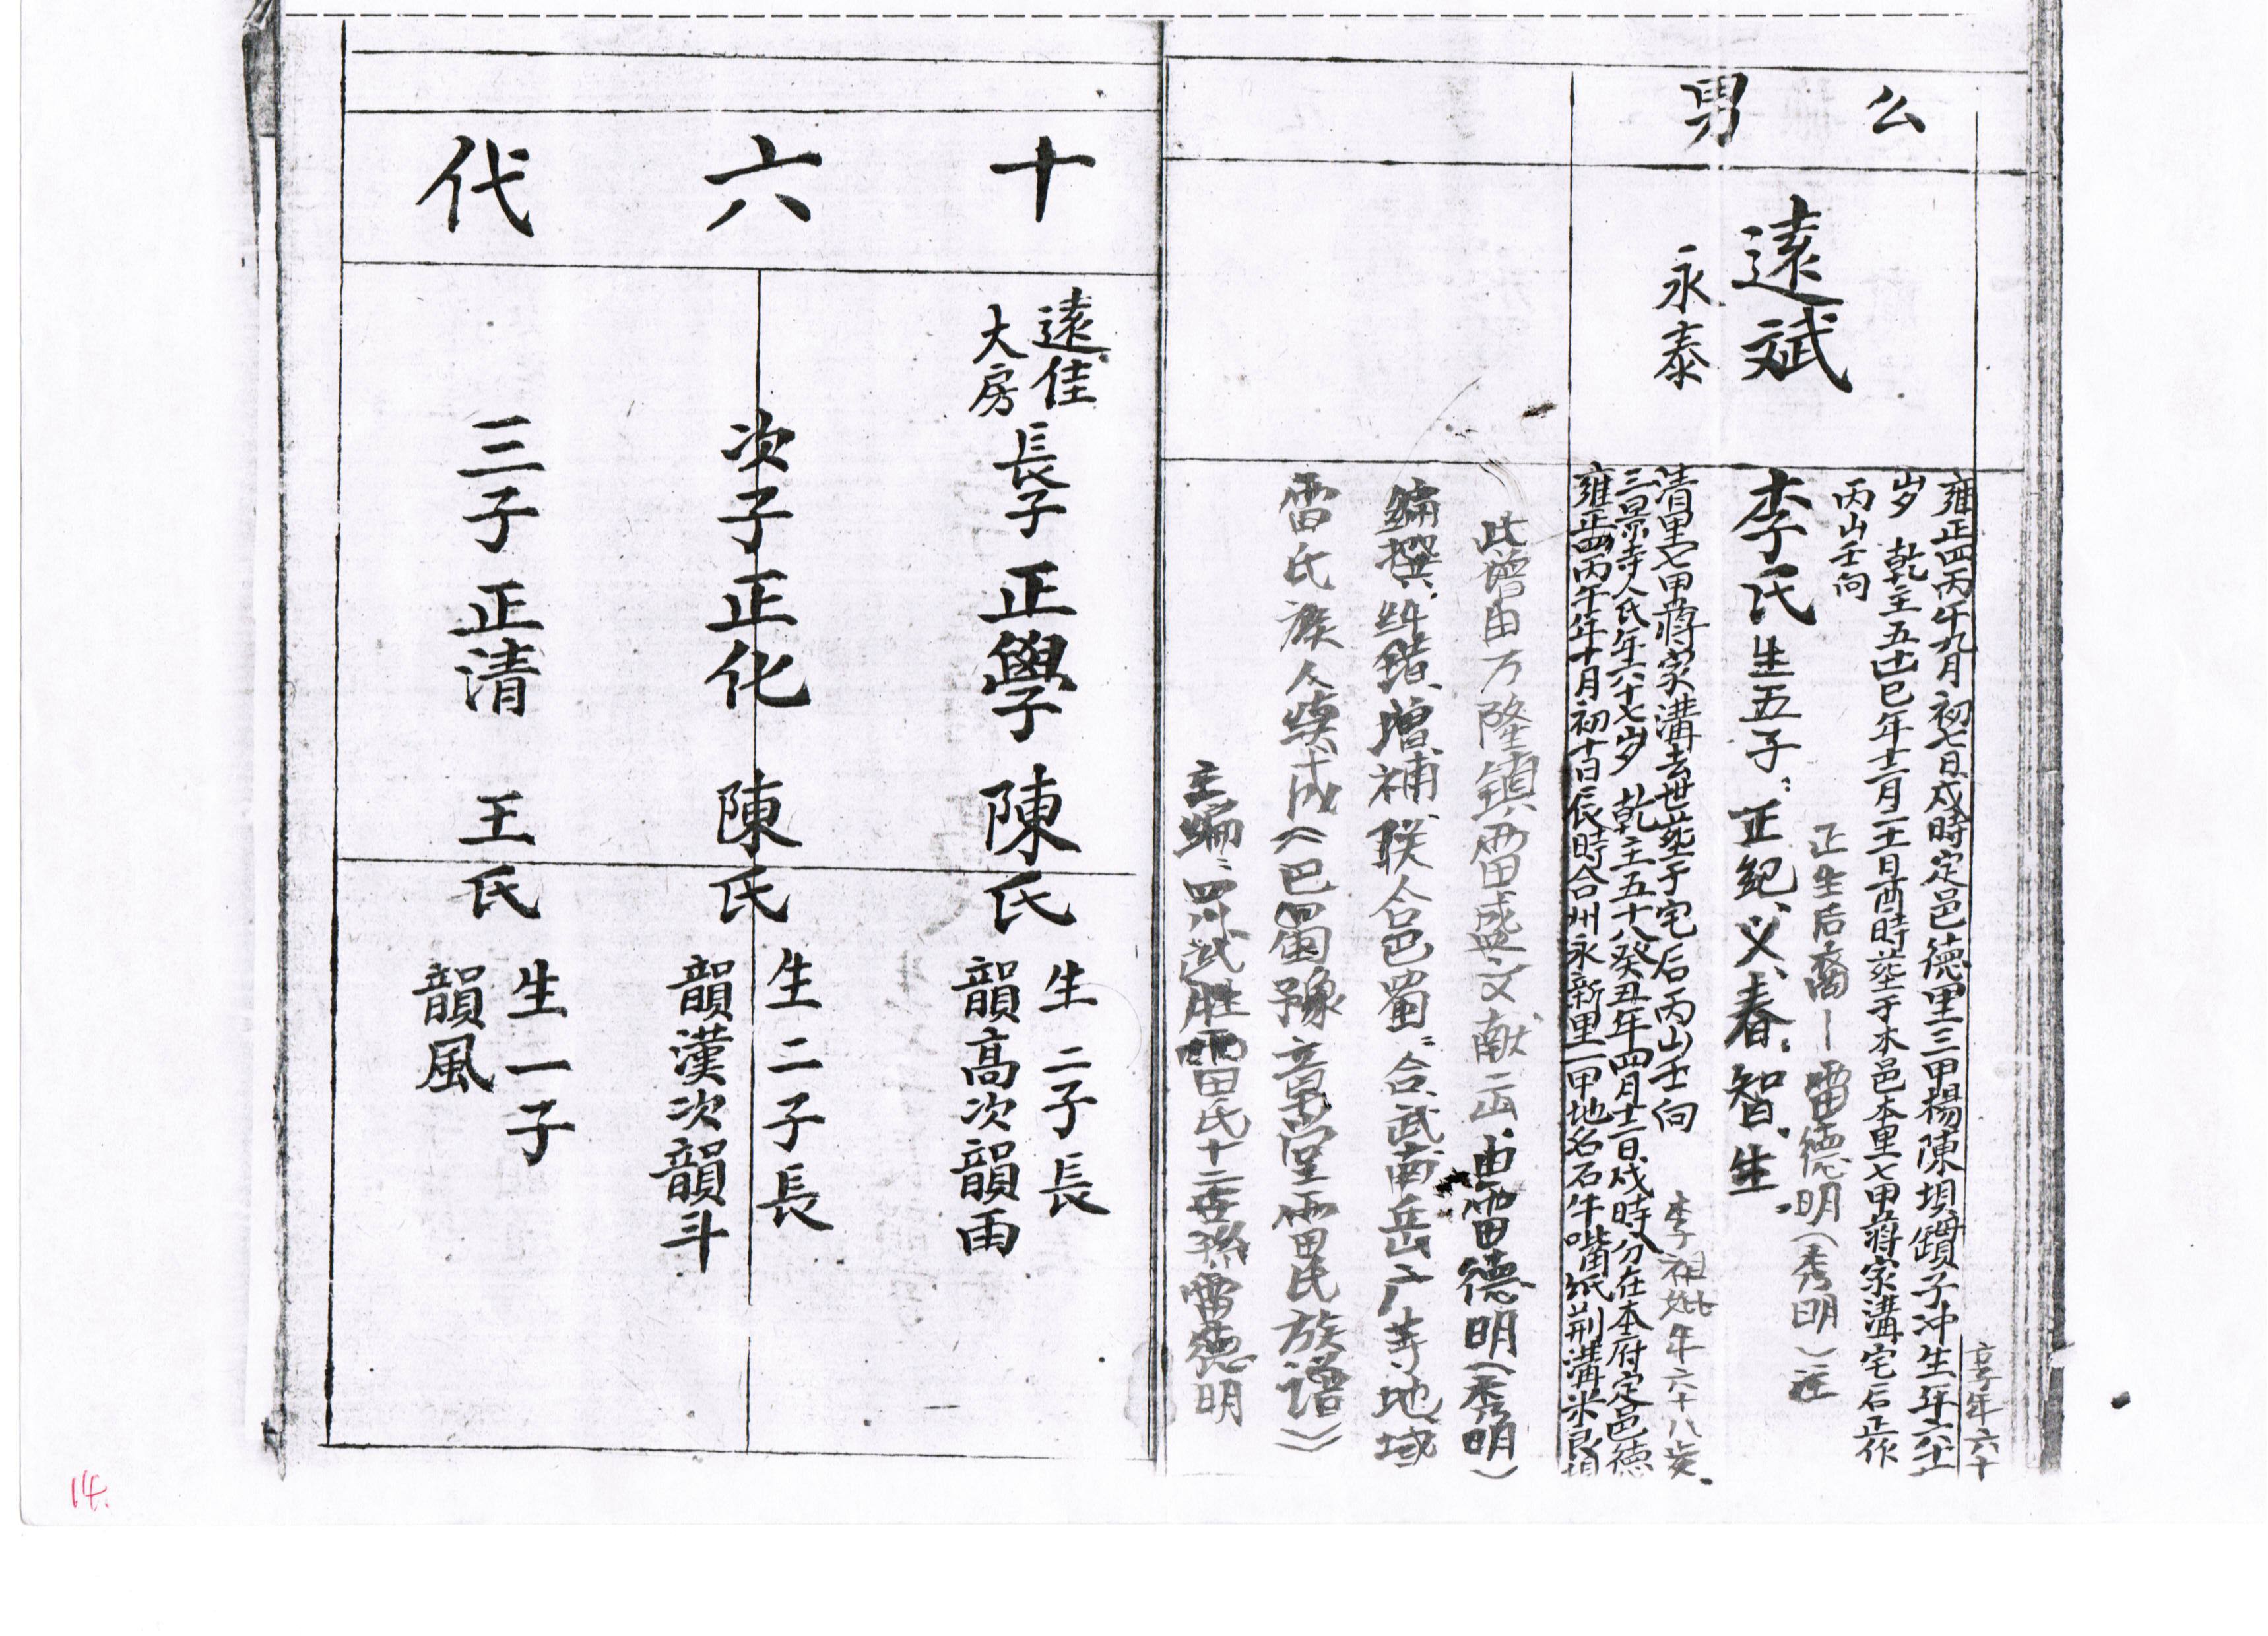 么男
遠斌
永泰
享年六十
雍正四丙午九月初七日戍時定邑德里三甲楊陳垻鑽子冲生年六十
岁 乾主五十巳年十二月二十日酉時葬于本邑本里七甲蔣家溝宅后正作
丙山壬向
正生后裔—雷德明(秀明)注
李氏生五子：正紀、义、春、智、生。
清里七甲蔣家溝去世葬于宅后丙山壬向
李祖妣年六十八歲.
三景寺人氏年六十七岁 乾主五十八癸丑年四月十二日戍時分在本府定邑德
雍正四丙午年十月初十日辰時合州永新里一甲地名石牛嘴纸荊溝米良垻
此譜由万隆鎮雷盛文献出、由雷德明(秀明)
編撰、纠錯、增補、联合邑蜀：合、武、南、岳、广等地域
雷氏族人续成《巴蜀豫章堂雷氏族谱》
主编：四川武胜雷氏十二世孫雷德明
十六代
遠佳
大房
長子正學 陳氏
生二子長
韻高次韻雨
次子正化 陳氏
生二子長
韻漢次韻斗
三子正清 王氏
生一子
韻風
14.